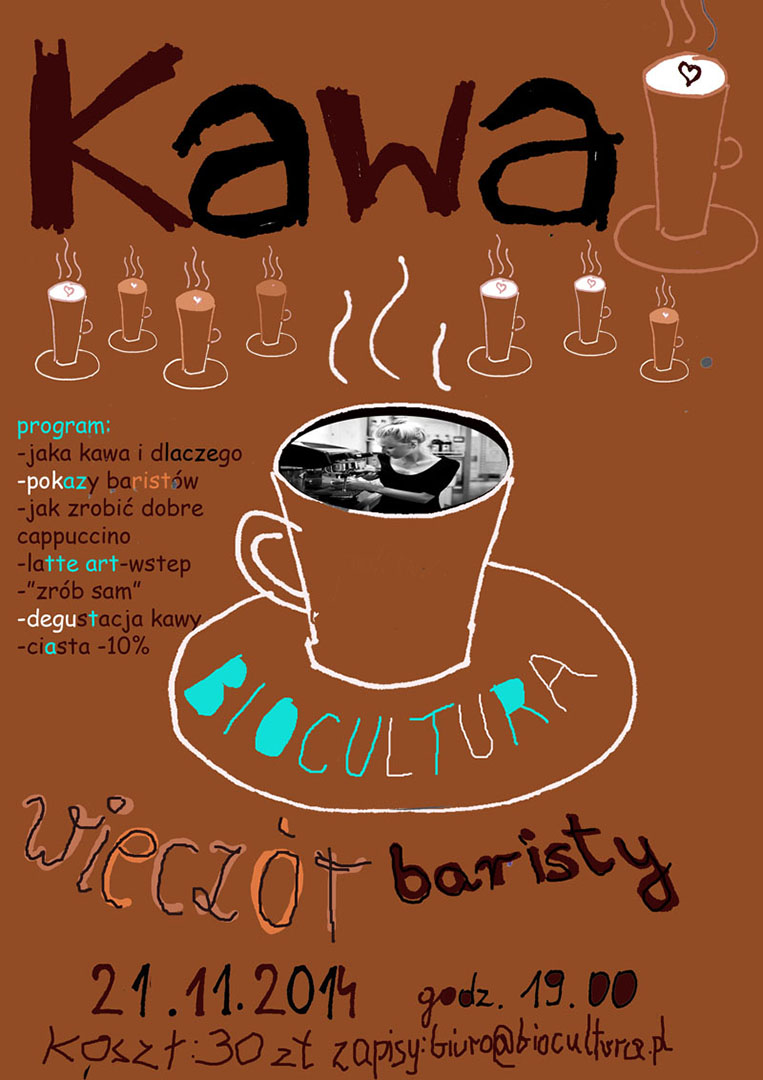 Kawa
program:
-jaka kawa i dlaczego
-pokazy baristów
-jak zrobić dobre
cappuccino
-latte art-wstep
-"zrób sam"
-degustacja kawy
-ciasta -10%
BIOCULTURA
wieczór baristy
21.11.2014 godz. 19.00
koszt:30zł zapisy:biuro@biocultura.pl